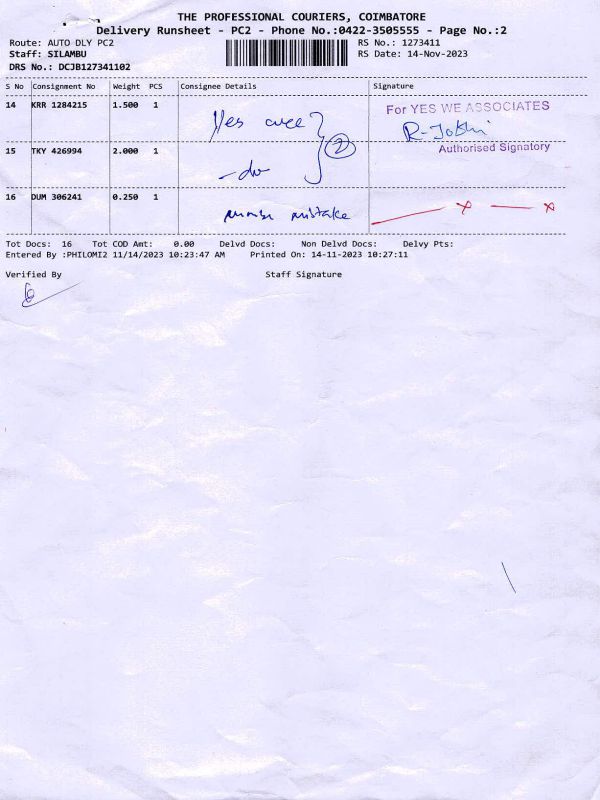 THE PROFESSIONAL COURIERS, COIMBATORE
Delivery Runsheet - PC2 - Phone No.:0422-3505555 - Page No.:2
Route: AUTO DLY PC2
RS No.: 1273411
Staff: SILAMBU
RS Date: 14-Nov-2023
DRS No.: DCJB127341102
S No Consignment No Weight PCS Consignee Details Signature
14 KRR 1284215 1.500 1
For YES WE ASSOCIATES
Yes
2
Authorised Signatory
15 TKY 426994 2.000 1
16 DUM 306241 0.250 1
mistake
Tot Docs: 16 Tot COD Amt: 0.00 Delvd Docs: Non Delvd Docs: Delvy Pts:
Entered By :PHILOMI2 11/14/2023 10:23:47 AM Printed On: 14-11-2023 10:27:11
Verified By Staff Signature